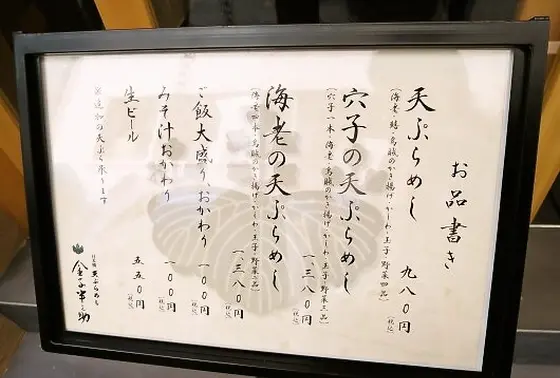 お品書き
天ぷらめし 九八〇円(税込)
(海老・鶏・烏賊のかき揚げ・かしわ・玉子・野菜四品)
穴子の天ぷらめし 一、三八〇円(税込)
(穴子一本・海老・烏賊のかき揚げ・かしわ・玉子・野菜三品)
海老の天ぷらめし 一、三八〇円(税込)
(海老四本・烏賊のかき揚げ・かしわ・玉子・野菜二品)
ご飯大盛り、おかわり 一〇〇円(税込)
みそ汁おかわり 一〇〇円(税込)
生ビール 五五〇円(税込)
※追加の天ぷら承ります
日本橋 天ぷらめし
金子半之助